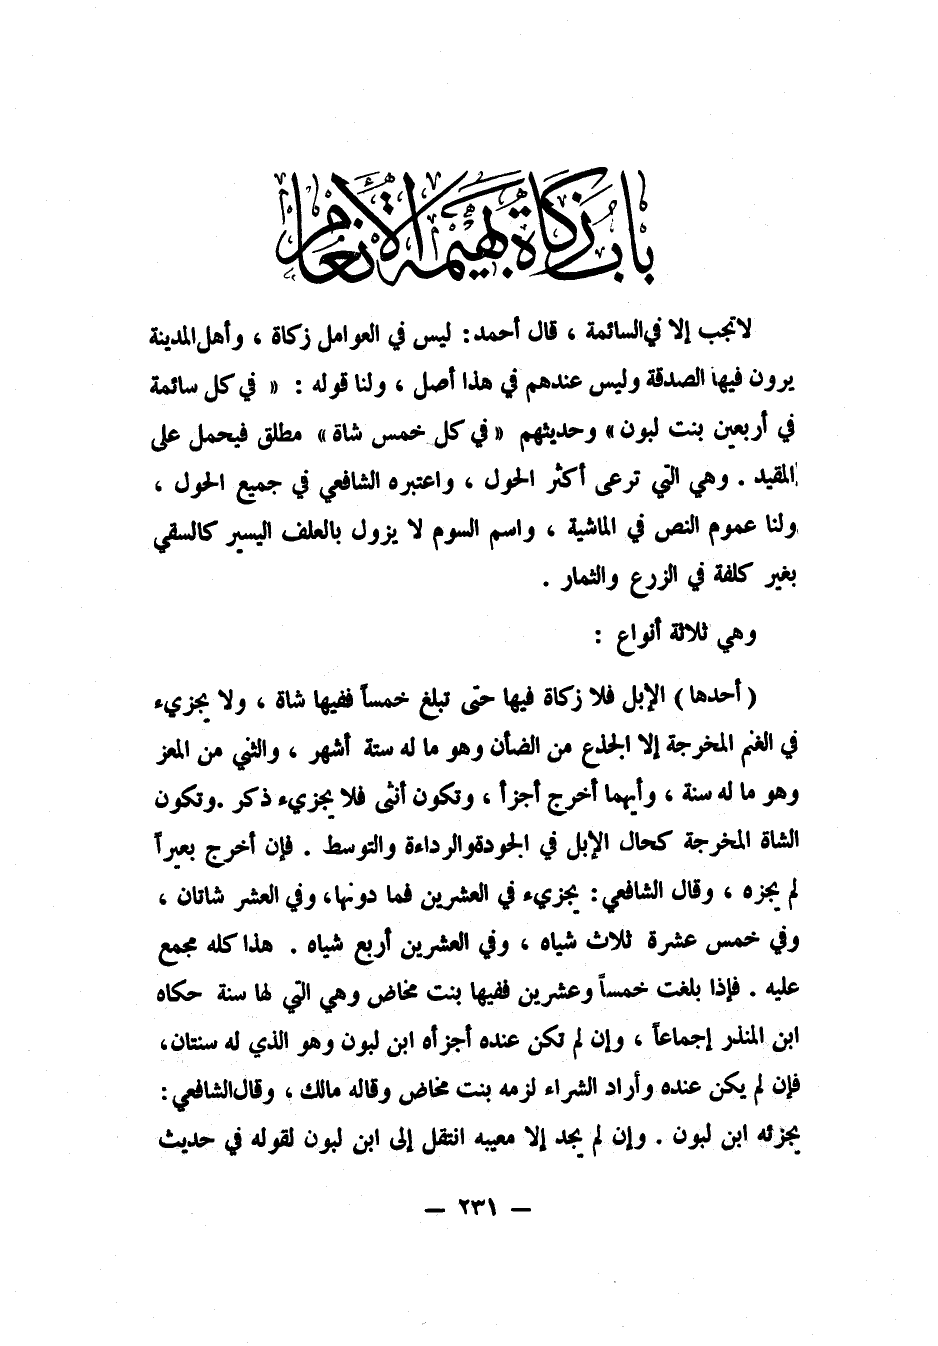 باب زكاة بهيمة الأنعام
لا تجب إلا في السائمة ، قال أحمد: ليس في العوامل زكاة ، وأهل المدينة
يرون فيها الصدقة وليس عندهم في هذا أصل ، ولنا قوله : « في كل سائمة
في أربعين بنت لبون» وحديثهم «في كل خمس شاة» مطلق فيحمل على
المقيد . وهي التي ترعى أكثر الحول ، واعتبره الشافعي في جميع الحول ،
ولنا عموم النص في الماشية ، واسم السوم لا يزول بالعلف اليسير كالسقي
بغير كلفة في الزرع والثمار .
وهي ثلاثة أنواع :
( أحدها ) الإبل فلا زكاة فيها حتى تبلغ خمساً ففيها شاة ، ولا يجزيء
في الغنم المخرجة إلا الجذع من الضأن وهو ما له ستة أشهر ، والثني من المعز
وهو ما له سنة ، وأيهما أخرج أجزأ ، وتكون أنثى فلا يجزيء ذكر .وتكون
الشاة المخرجة كحال الإبل في الجودة والرداءة والتوسط . فإن أخرج بعيراً
لم يجزه ، وقال الشافعي: يجزيء في العشرين فما دونها، وفي العشر شاتان ،
وفي خمس عشرة ثلاث شياه ، وفي العشرين أربع شياه . هذا كله مجمع
عليه . فإذا بلغت خمساً وعشرين ففيها بنت مخاض وهي التي لها سنة حكاه
ابن المنذر إجماعاً ، وإن لم تكن عنده أجزأه ابن لبون وهو الذي له سنتان،
فإن لم يكن عنده وأراد الشراء لزمه بنت مخاض وقاله مالك ، وقال الشافعي:
يجزئه ابن لبون . وإن لم يجد إلا معيبه انتقل إلى ابن لبون لقوله في حديث
— ٢٣١ —